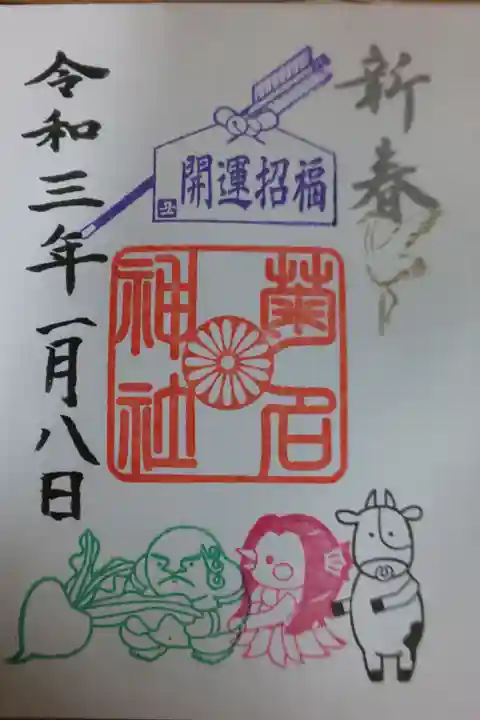 新春
開運招福
丑
菊名
神社
令和三年一月八日